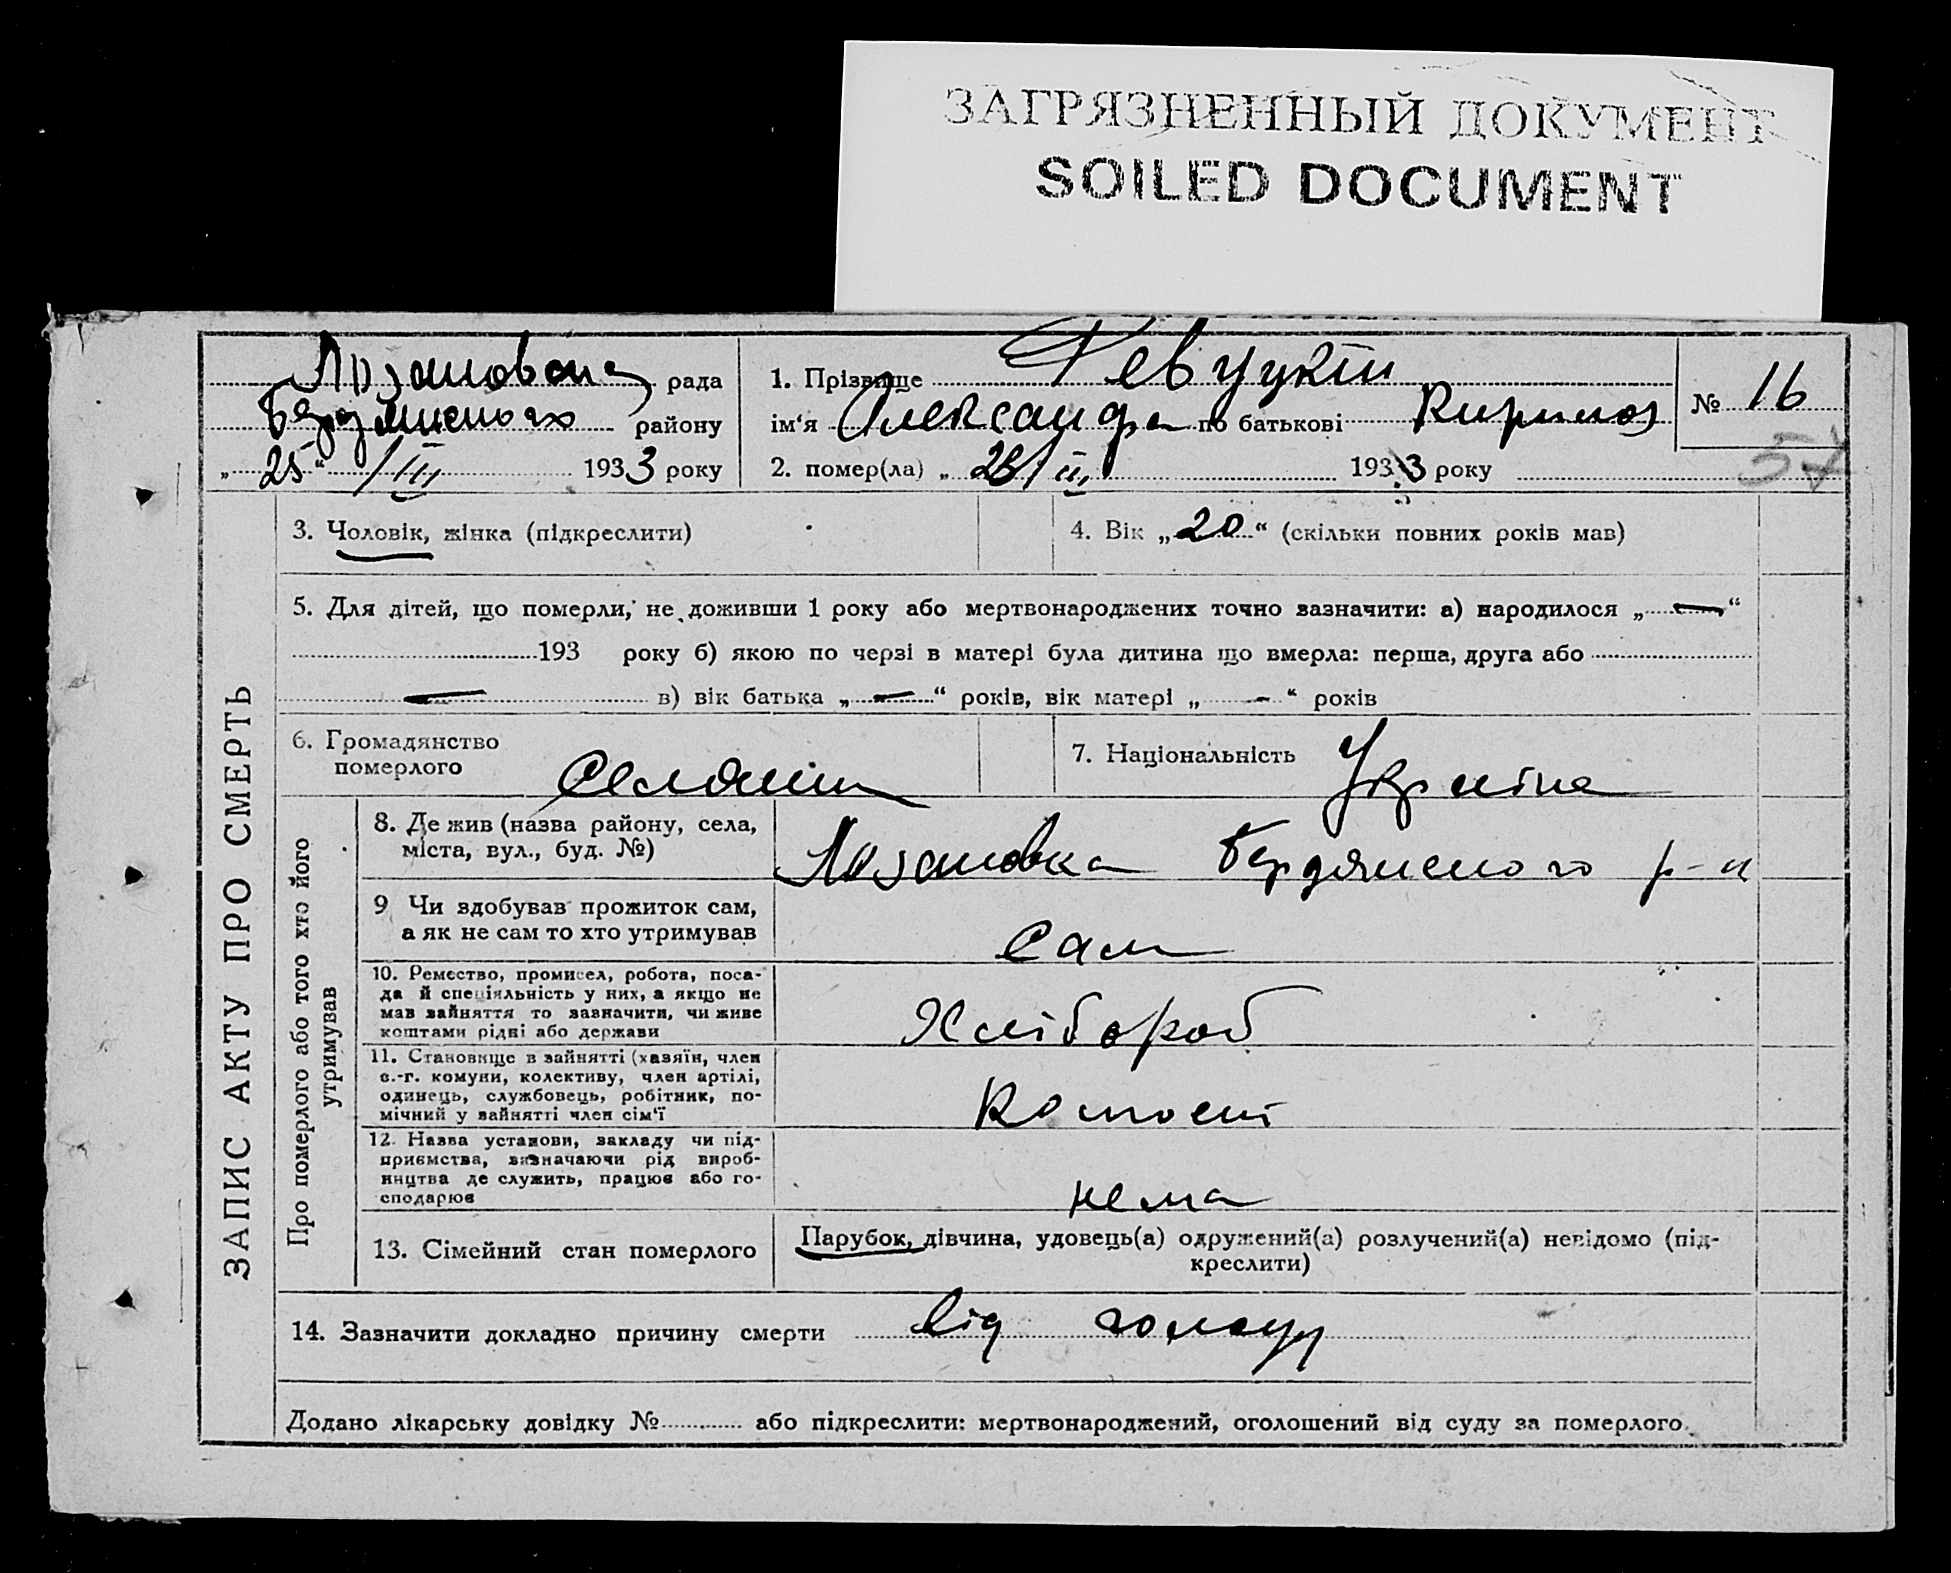 ЗАГРЯЗНЕННЫЙ ДОКУМЕНТ
SOILED DOCUMENT
рада
району
„25“ / III 1933 року
1. Прізвище
ім'я Олександр по батькові
2. помер(ла) „ 193 3 року
№ 16
ЗАПИС АКТУ ПРО СМЕРТЬ
3. Чоловік, жінка (підкреслити)
4. Вік „20“ (скільки повних років мав)
5. Для дітей, що померли, не доживши 1 року або мертвонароджених точно зазначити: а) народилося „—“
193 року б) якою по черзі в матері була дитина що вмерла: перша, друга або
— в) вік батька „—“ років, вік матері „—“ років
6. Громадянство
померлого
селянин
7. Національність
Про померлого або того хто його
утримував
8. Де жив (назва району, села,
міста, вул., буд. №)
Лозановка Бердянського р-н
9 Чи здобував прожиток сам,
а як не сам то хто утримував
Сам
10. Ремество, промисел, робота, поса-
да й спеціяльність у них, а якщо не
мав зайняття то зазначити, чи живе
коштами рідні або держави
Хлібороб
11. Становище в зайнятті (хазяїн, член
с.-г. комуни, колективу, член артілі,
одинець, службовець, робітник, по-
мічний у зайнятті член сім'ї
12. Назва установи, закладу чи під-
приємства, визначаючи рід вироб-
ництва де служить, працює або го-
сподарює
нема
13. Сімейний стан померлого
Парубок, дівчина, удовець(а) одружений(а) розлучений(а) невідомо (під-
креслити)
14. Зазначити докладно причину смерти від голоду
Додано лікарську довідку № або підкреслити: мертвонароджений, оголошений від суду за померлого.